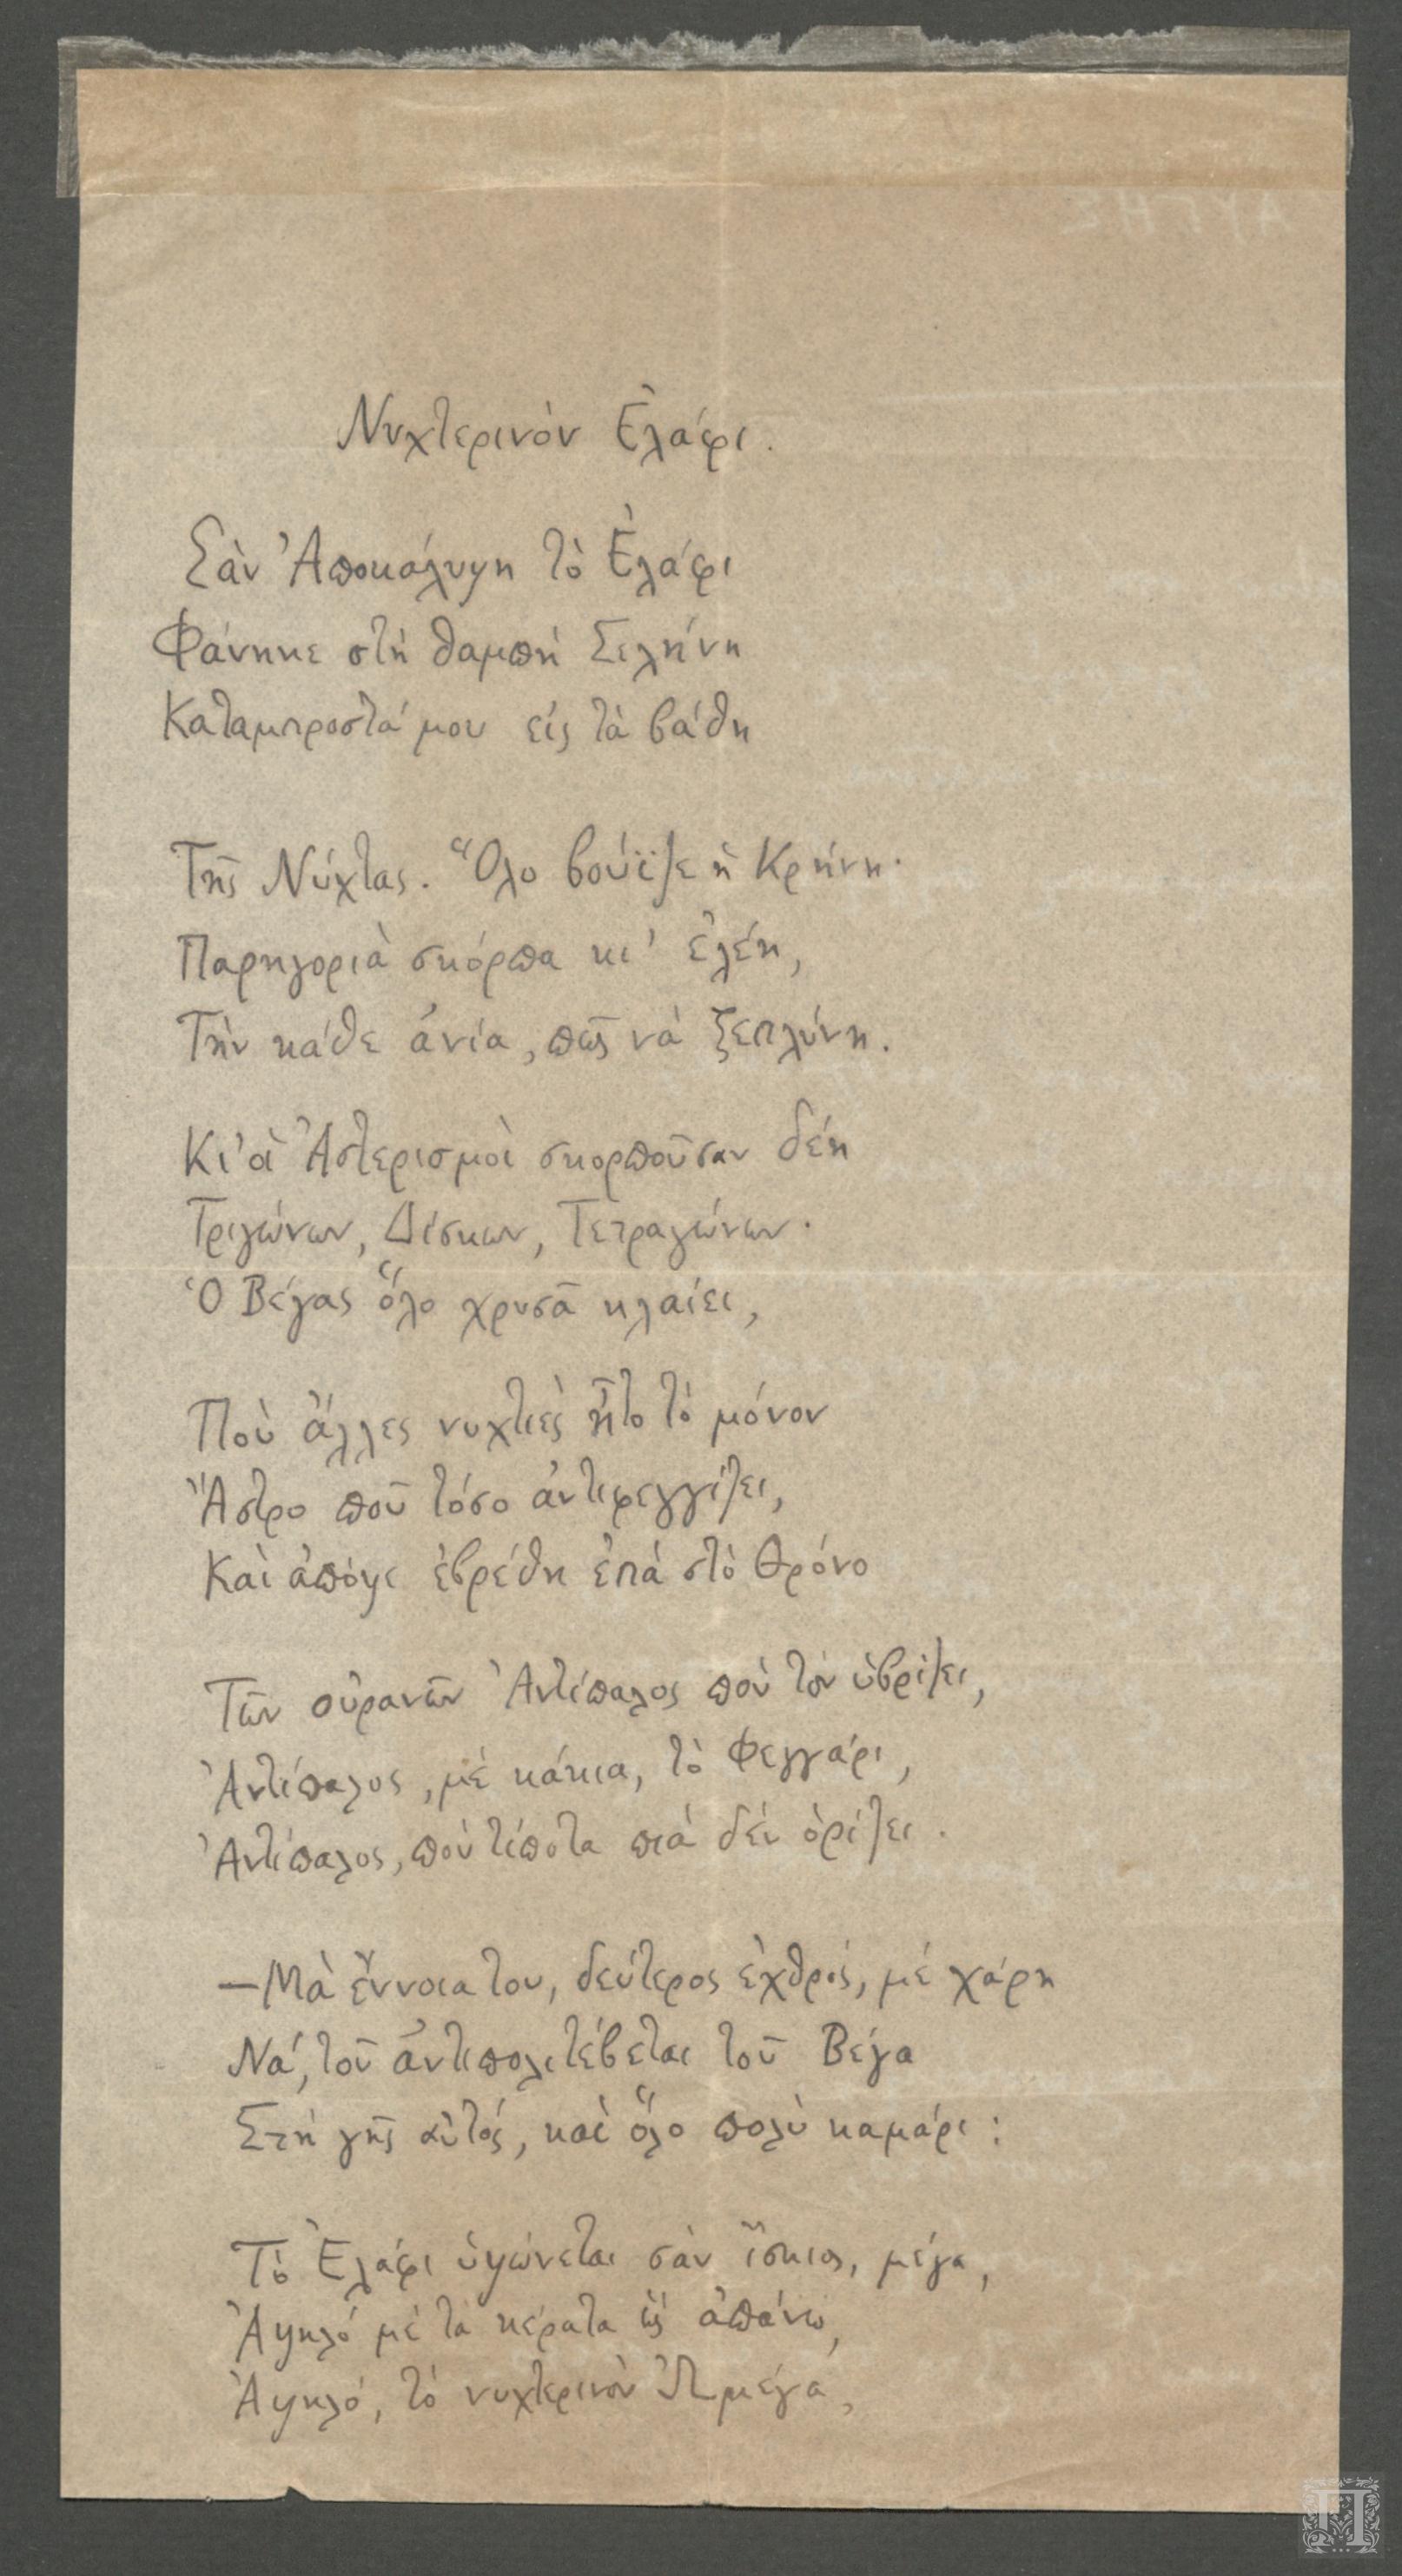 Νυχτερινὸν Ἐλάφι.
Σὰν Ἀποκάλυψη τὸ Ἐλάφι
Φάνηκε στὴ θαμπὴ Σελήνη
Καταμπροστά μου εἰς τὰ βάθη
Τῆς Νύχτας. Ὅλο βούϊζε ἡ Κρήνη·
Παρηγοριὰ σκόρπα κι' ἐλέη,
Τὴν κάθε ἀνία, πῶς νὰ ξεπλύνη.
Κι' ἀ Ἀστερισμοὶ σκορποῦσαν δέη
Τριγώνων, Δίσκων, Τετραγώνων·
Ὁ Βέγας ὅλο χρυσᾶ κλαίει,
Ποὺ ἄλλες νυχτιὲς ἦτο τὸ μόνον
Ἄστρο ποῦ τόσο ἀντιφεγγίζει,
Καὶ ἀπόψε ἐβρέθη ἐπὰ στὸ θρόνο
Τῶν οὐρανῶν Ἀντίπαλος ποὺ τὸν ὑβρίζει,
Ἀντίπαλος, μὲ κάκια, τὸ Φεγγάρι,
Ἀντίπαλος, ποὺ τίποτα πιὰ δὲν ὁρίζει.
—Μὰ ἔννοια του, δεύτερος ἐχθρός, μὲ χάρη
Νά, τοῦ ἀντιπολιτέβεται τοῦ Βέγα
Στὴ γῆς αὐτός, καὶ ὅλο πολὺ καμάρι:
Τὸ Ἐλάφι ὑψώνεται σὰν ἴσκιος, μέγα,
Ἀψηλό μὲ τὰ κέρατα ὣς ἀπάνω,
Ἀψηλό, τὸ νυχτερινὸν Ὠμέγα,